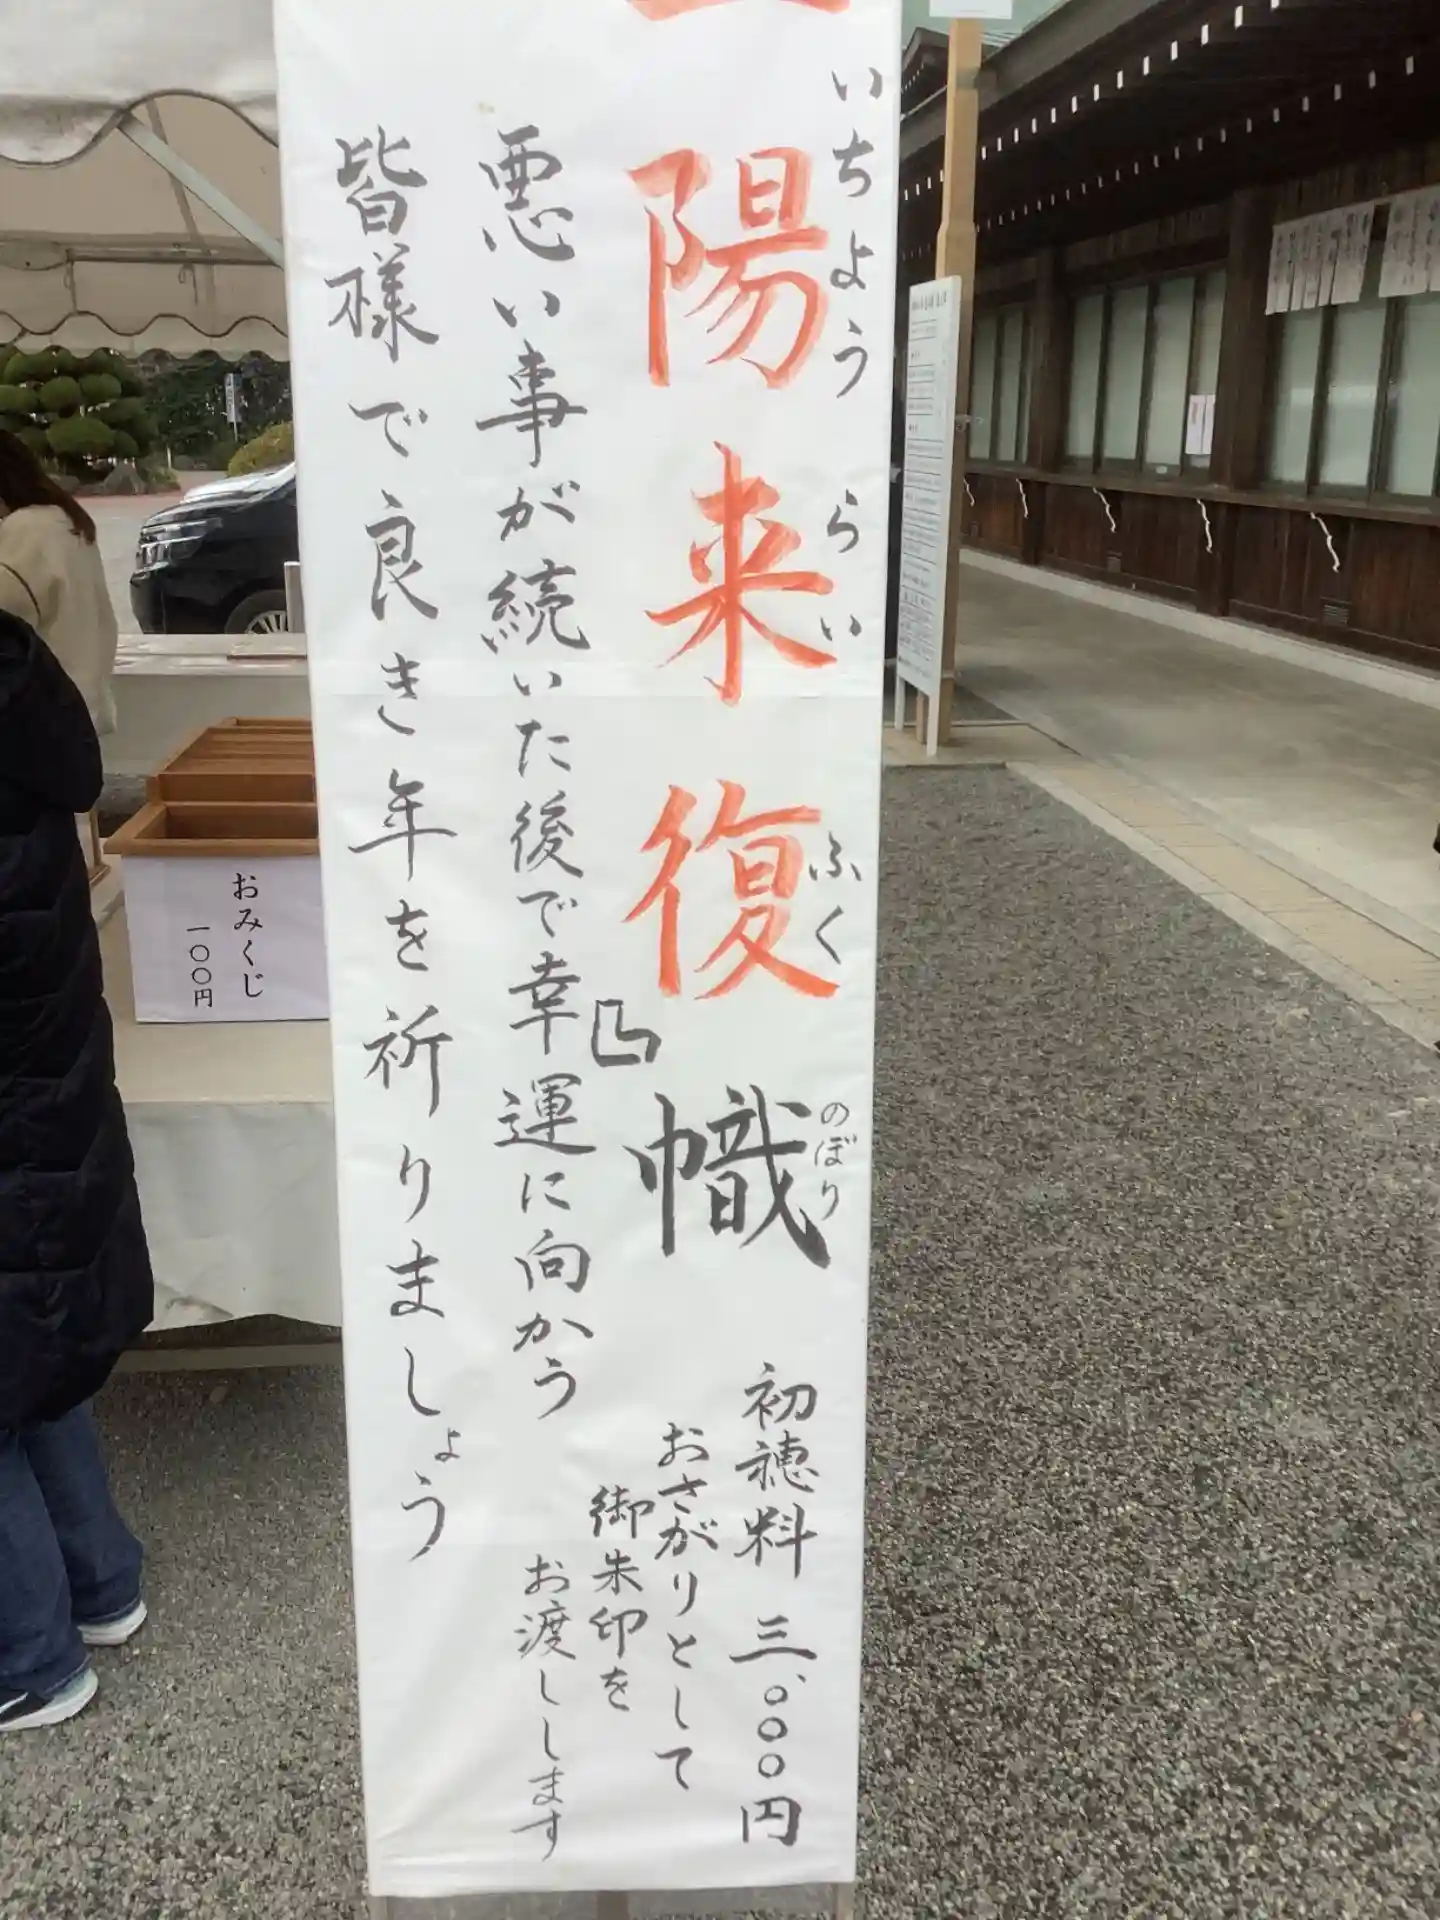 一陽来復』幟
いちようらいふく
のぼり
初穂料 三、〇〇〇円
おさがりとして
御朱印を
お渡しします
悪い事が続いた後で幸運に向かう
皆様で良き年を祈りましょう
おみくじ
一〇〇円